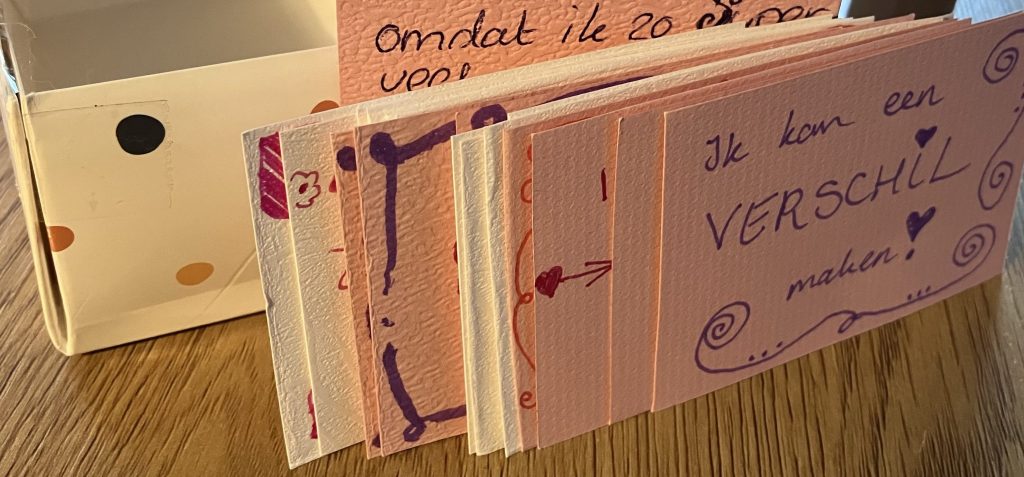 omdat ik zo super
veel
Ik kan een
VERSCHIL
maken!